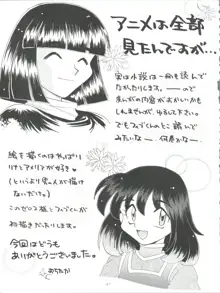 アニメは全部
見たんですが…
実は小説は一冊も読んで
なかったりします。——ので
まんがの内容がおかしいかも
しれませんが、ゆるして下さい。
でもフィブくんのとこ 読んで
みたいな— 何巻かな—
絵を描くのはやっぱり
リナとアメリアが好き♥
(というより男の人が描け
ないだけ)
このゼロス様とフィブくんが
初描きだったりします。
今回はどうも
ありがとうございました。